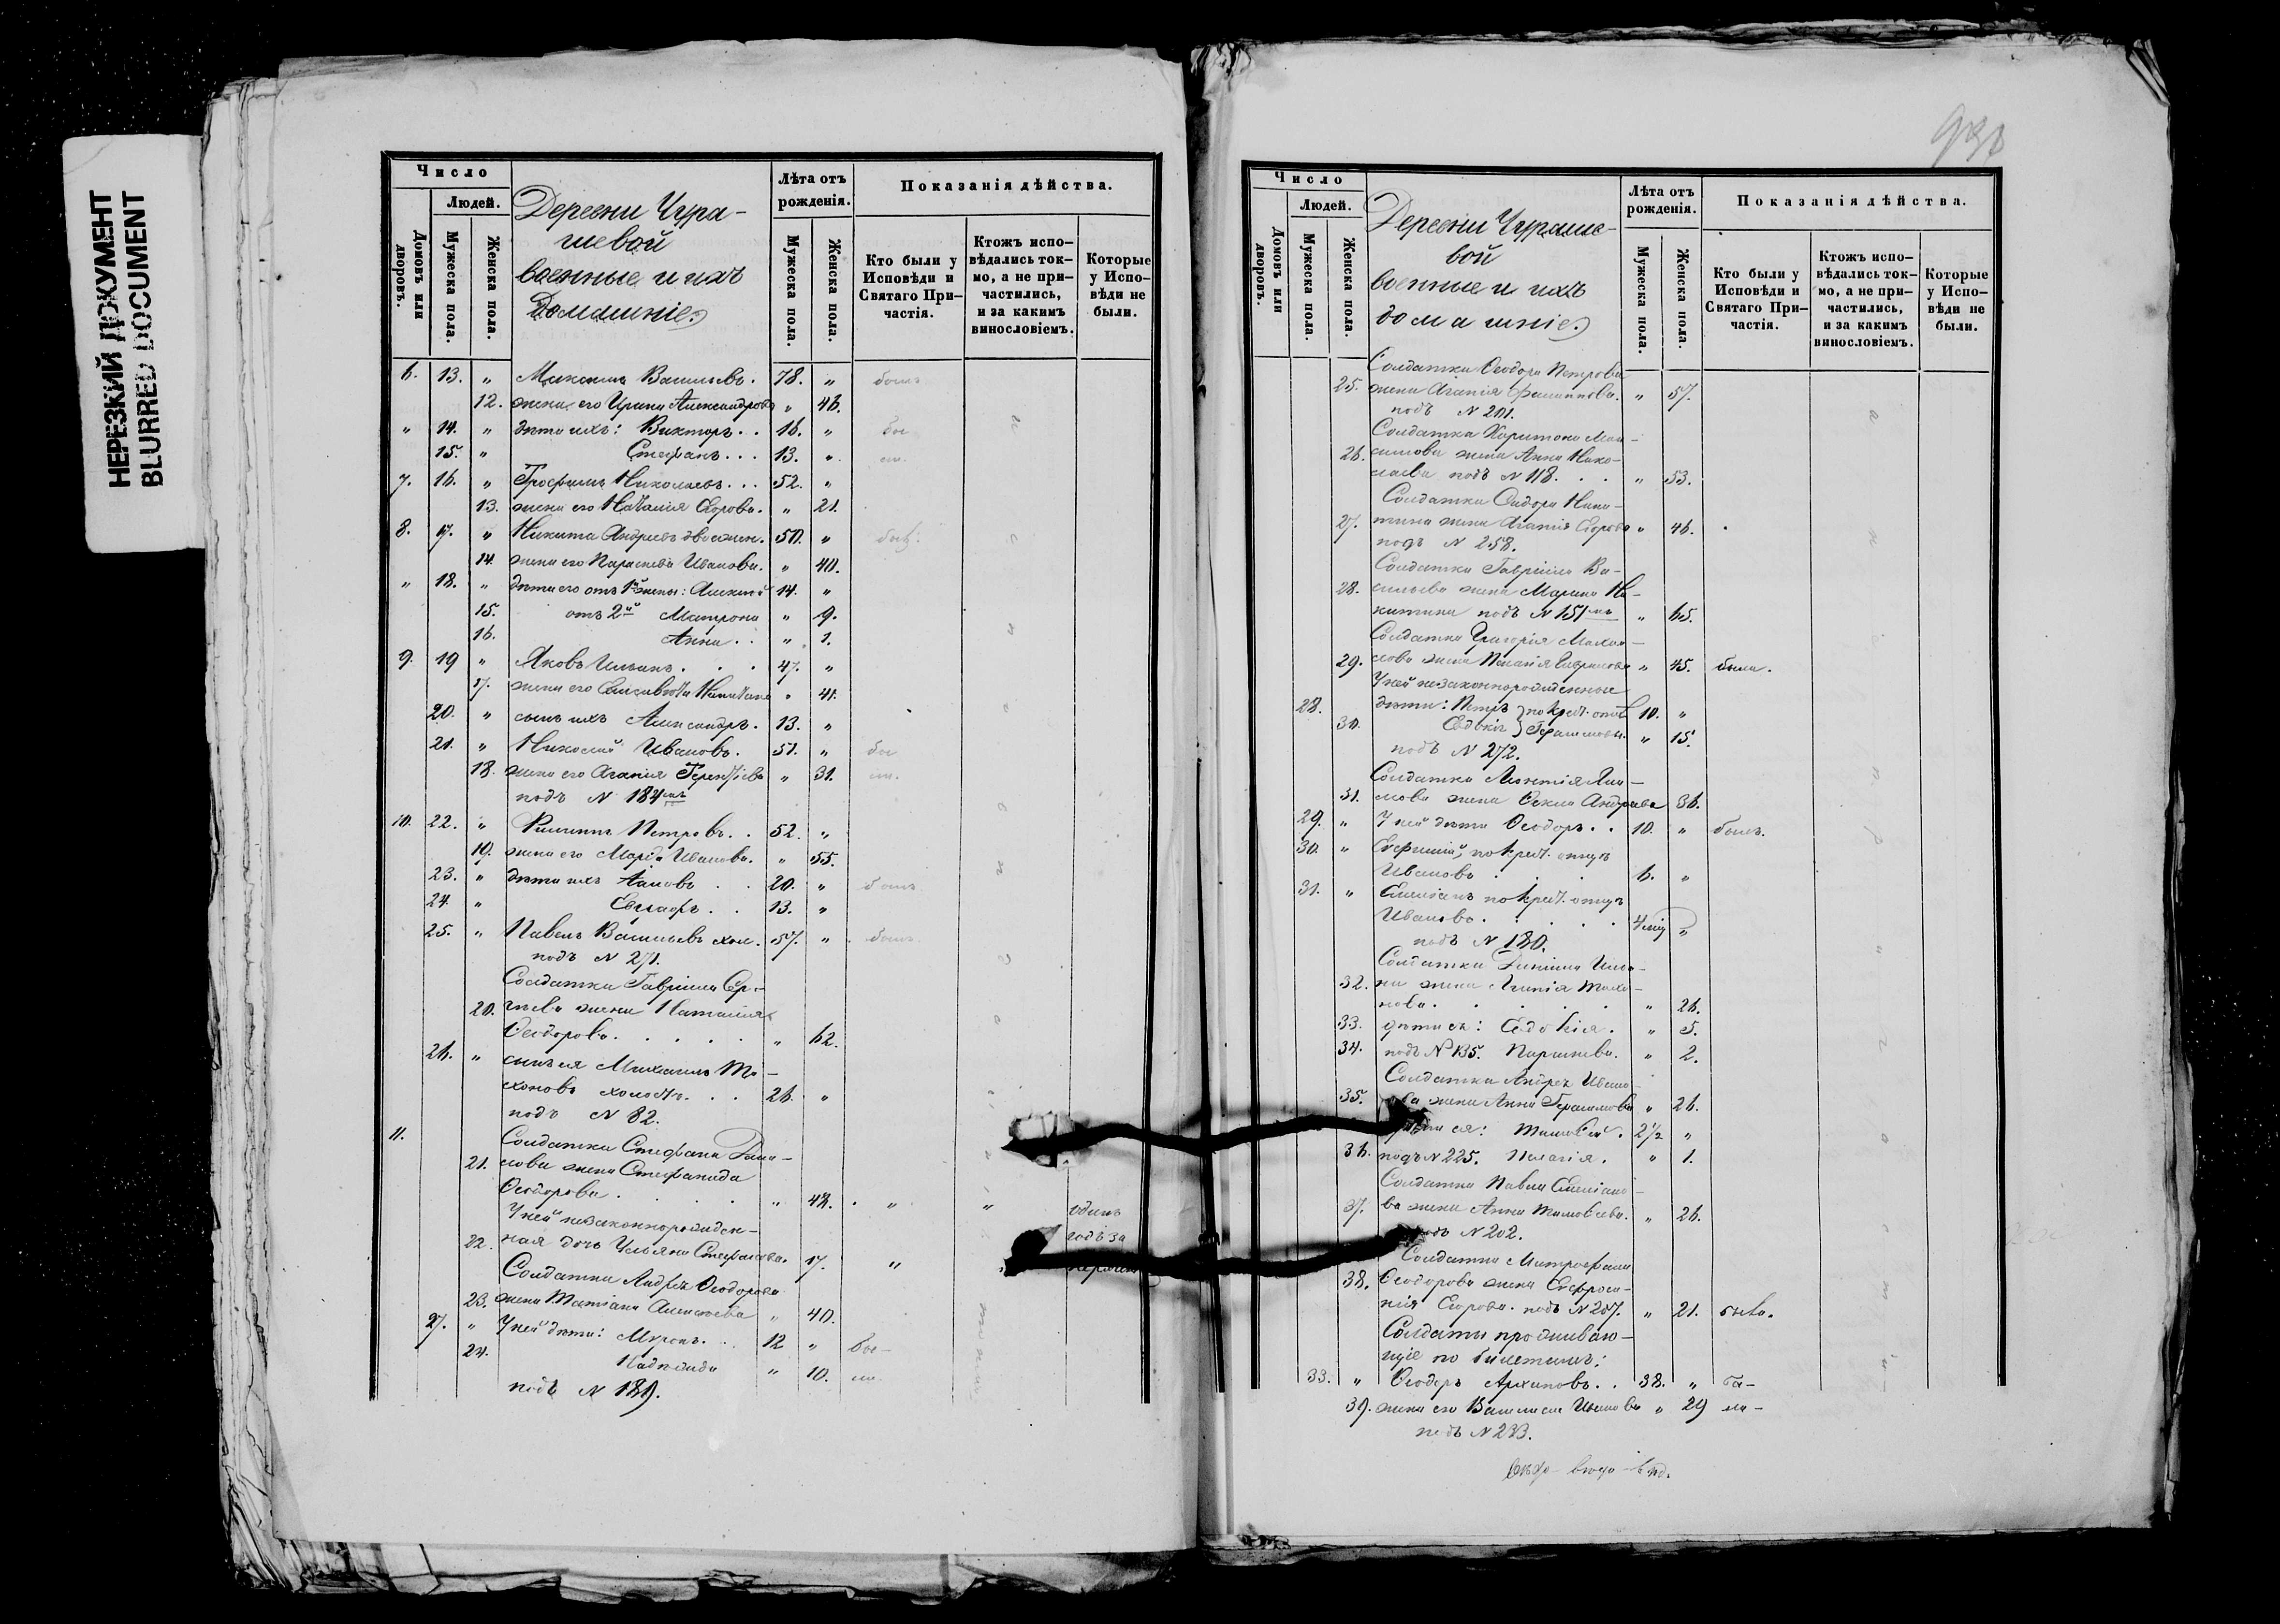 НЕРЕЗКИЙ ДОКУМЕНТ
BLURRED DOCUMENT
Число
Людей.
Домовъ или дворовъ.
Мужеска пола.
Женска пола.
Деревни Чура-
шевой
военные и ихъ
Домашніе.
Лѣта отъ рожденія.
Мужеска пола.
Женска пола.
Показанія дѣйства.
Кто были у Исповѣди и Святаго При-частія.
Ктожъ испо-вѣдались ток-мо, а не при-частились, и за какимъ винословіемъ.
Которые у Испо-вѣди не были.
6. 13. " Васильевъ. 78. "
12. жена его Ирина Александрова " 46.
" 14. " дѣти ихъ: Викторъ . . 16. "
15. " Стефанъ . . . 13. "
7. 16. " Трофимъ Николаевъ . . . 52. "
13. жена его Наталія Егорова. " 21.
8. 17. " Никита Андреевъ двоежен. 50. "
14. жена его Параскева Иванова. " 40.
" 18. " дѣти его отъ 1й жены: Алексѣй 14. "
15. отъ 2й Матрона " 9.
16. Анна . . " 1.
9. 19 " Яковъ Ильинъ . . . 47. "
17. жена его Елисавета Никитина " 41.
20. " сынъ ихъ Александръ. 13. "
21. " Николай Ивановъ. 51. "
18. жена его Агапія Терентіева " 31.
подъ N 184мъ
10. 22. " Филиппъ Петровъ . . 52. "
19. жена его Марія Иванова. " 55.
23. " дѣти ихъ . . 20. "
24. " Евграфъ . . 13. "
25. " Павелъ Васильевъ хол. 57. "
подъ N 271.
Солдатка Гавріила Сер-
20. гѣева жена Наталія
Ѳеодорова . . . . . " 62.
26. " сынъ ея Михаилъ Ти-
хоновъ холостъ . . . 26. "
подъ N 82.
11. Солдатка Стефана Дани-
21. лова жена Стефанида
Ѳеодорова . . . . " 48. " "
У ней незаконнорожден-
22. ная дочь Ульяна Стефанова. 17. "
одинъ
годъ за
Солдатки Андрея Ѳеодорова
23. жена Татіана Алексѣева " 40.
27. " У ней дѣти: Миронъ . . 12 " бы-
24. Надежда " 10. ли.
подъ N 189.
Число
Людей.
Домовъ или дворовъ.
Мужеска пола.
Женска пола.
Деревни Чураше-
вой
военные и ихъ
домашніе.
Лѣта отъ рожденія.
Мужеска пола.
Женска пола.
Показанія дѣйства.
Кто были у Исповѣди и Святаго При-частія.
Ктожъ испо-вѣдались ток-мо, а не при-частились, и за какимъ винословіемъ.
Которые у Испо-вѣди не были.
Солдатка Ѳеодора Петрова
25. жена Агапія Филиппова. " 57.
подъ N 201.
Солдатка Харитона Мак-
26. симова жена Анна Нико-
лаева подъ N 118. . . " 53.
Солдатка Сидора Ники-
27. тина жена Агапія Егорова " 46.
подъ N 258.
Солдатка Гавріила Ва-
28. сильева жена Марина Ни-
китина подъ N 151мъ " 65.
Солдатка Григорія Михай-
29. лова жена Пелагія Гаврилова " 45. была.
У ней незаконнорожденные
28. дѣти: Петръ по крест. отцѣ 10. "
30. Евдокія Герасимовы. " 15.
подъ N 272.
Солдатка
31. жена Ѳекла Андреева 36.
29. " У ней дѣти Ѳеодоръ . . 10. " былъ.
30. " Евфимій, по крест. отцу
Ивановъ . . . 6. "
31. " Емеліанъ по крест. отцу
Ивановъ . . . . 4 мѣс "
подъ N 180.
Солдатка Даніила Ильи-
32. на жена Агапія Тихо-
нова . . . . . . " 26.
33. дѣти ея: Евдокія. " 5.
34. подъ N 135. Параскева. " 2.
Солдатка Андрея Ивано-
35. ва жена Анна Герасимова " 26.
дѣти ея: Тимоѳей. 2½ "
36. подъ N 225. Пелагія. " 1.
Солдатка Павла Емеліано-
37. ва жена Анна Тимоѳеева. " 26.
подъ N 202.
Солдатка Митрофана
38. Ѳеодорова жена Евфроси-
нія Егорова. подъ N 207. " 21. была.
Солдаты проживаю-
щіе по билетамъ:
33. " Ѳеодоръ Архиповъ . . 38. " бы-
39. жена его Василиса Иванова " 29 ли-
подъ N 233.